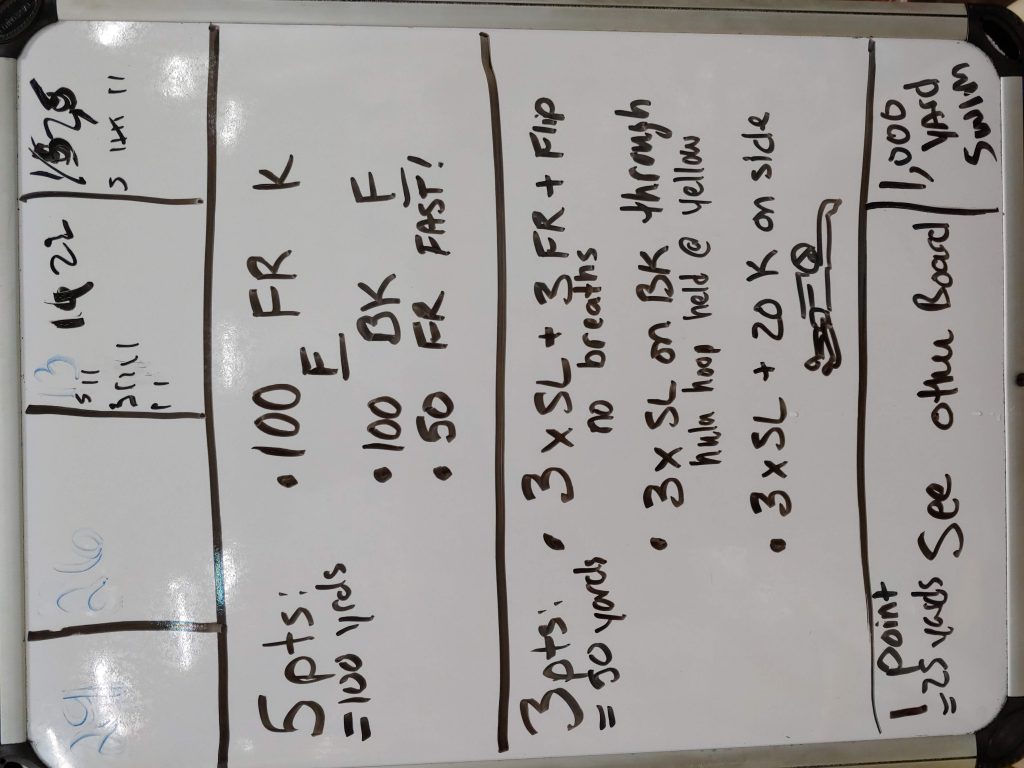 26 13 22
5pts: • 100 FR K
=100 yrds F
• 100 BK F
• 50 FR FAST!
3pts: • 3 x SL + 3 FR + Flip
= 50 yards no breaths
• 3 x SL on BK through
hula hoop held @ yellow
• 3 x SL + 20 K on side
1 point
=25 yards See other Board
1,000
YARD
SWIM